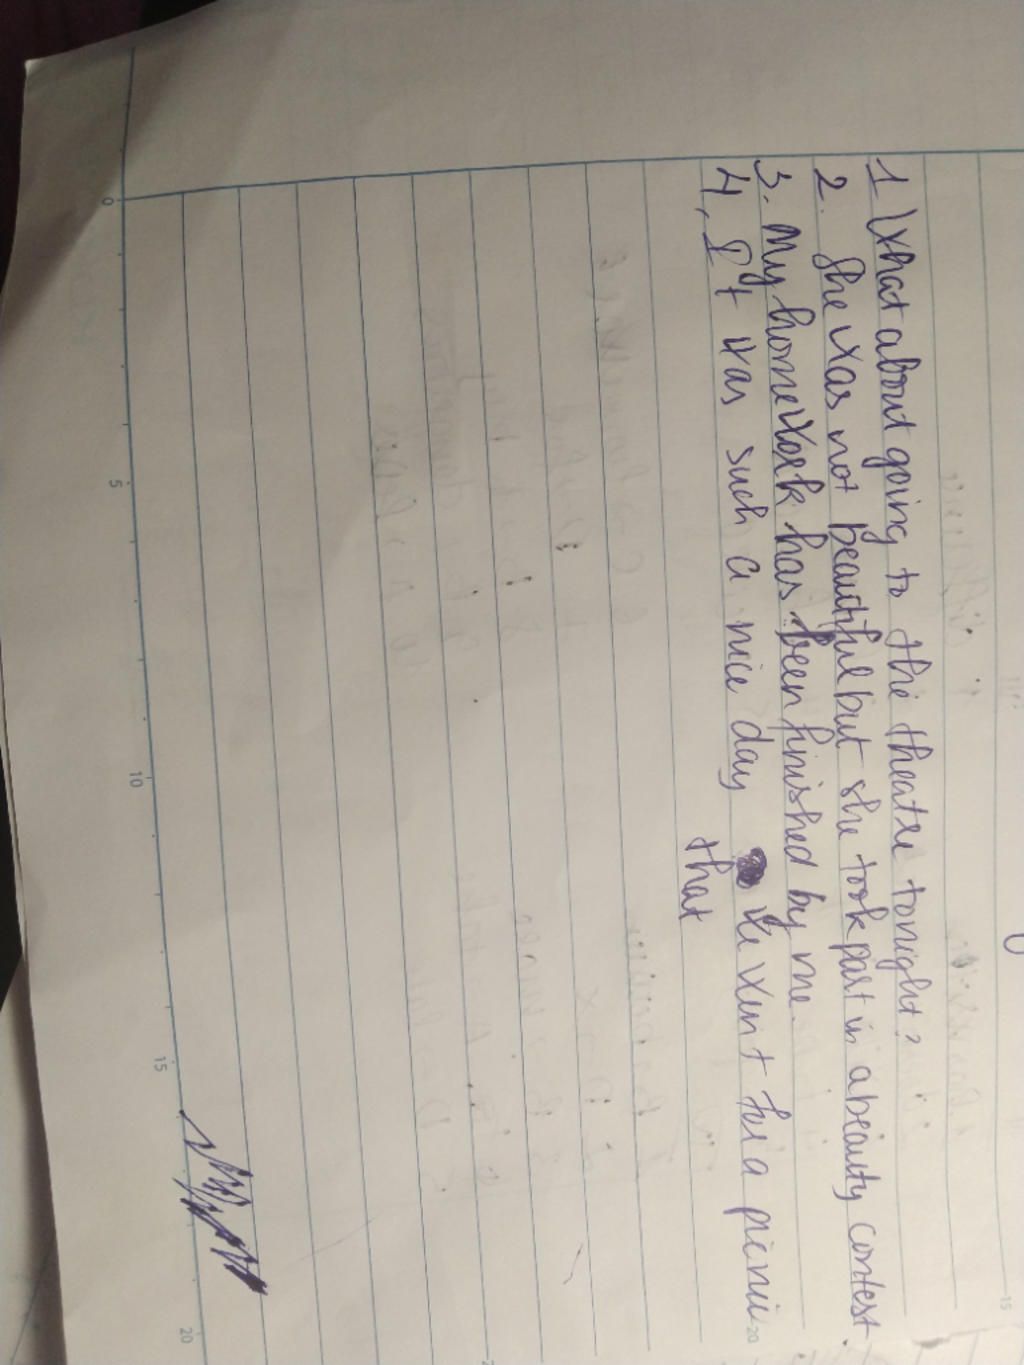 1 What about going to the theatre tonight?
2. She was not beautiful but she took part in a beauty contest.
3. My homework has been finished by me.
4, It was such a nice day we went for a picnic
that
0
5
10
15
20
15
20